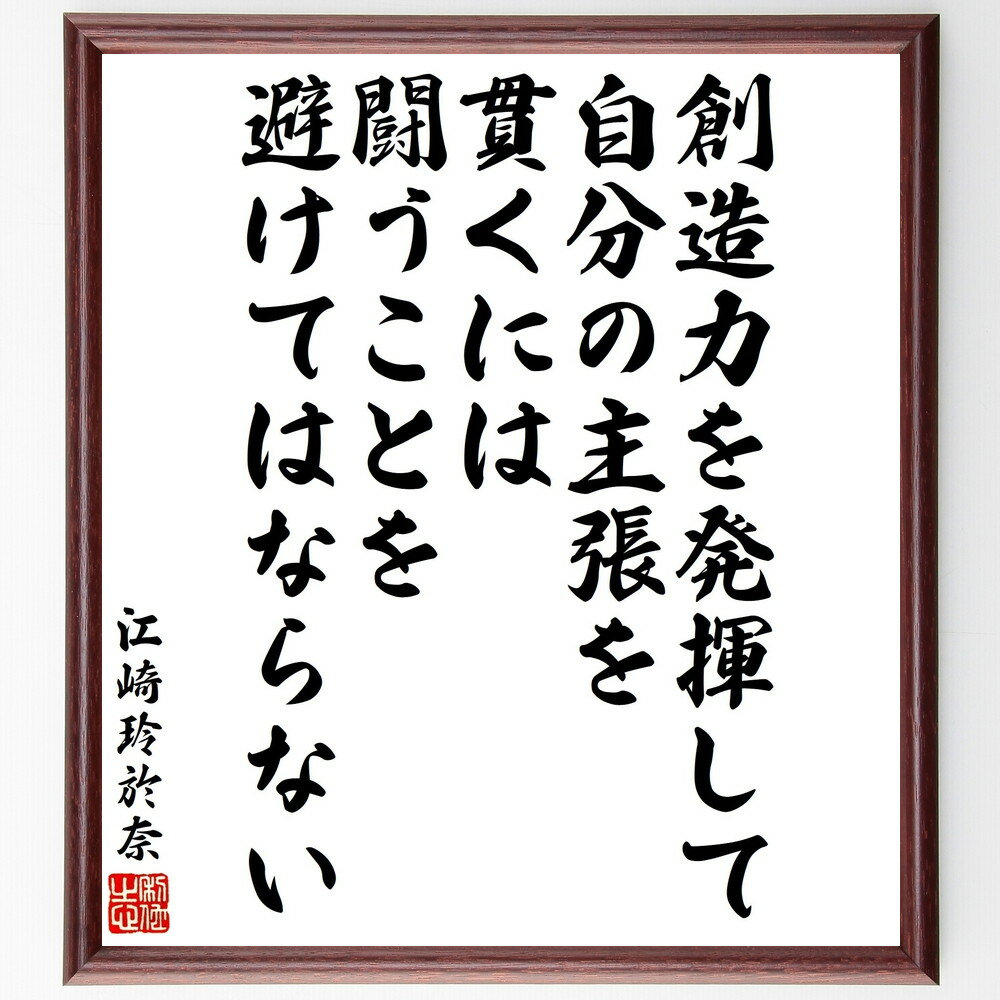 創造力を発揮して
自分の主張を
貫くには
闘うことを
避けてはならない
江崎玲於奈